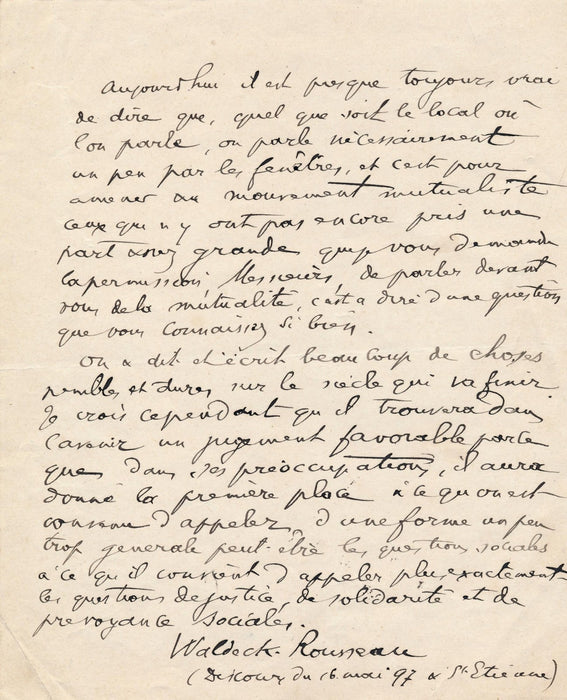 Aujourd'hui il est presque toujours vrai
de dire que, quel que soit le local où
l'on parle, on parle nécessairement
un peu par les fenêtres, et c'est pour
amener au mouvement mutualiste
ceux qui n'y ont pas encore pris une
part assez grande que je vous demande
la permission, Messieurs, de parler devant
vous de la mutualité, c'est à dire d'une question
que vous connaissez si bien.
On a dit et écrit beaucoup de choses
pénibles et dures sur le siècle qui va finir
Je crois cependant qu'il trouvera dans
l'avenir un jugement favorable parce
que dans ses préoccupations, il aura
donné la première place à ce qu'on est
convenu d'appeler, d'une forme un peu
trop generale peut-être les questions sociales
à ce qu'il convient d'appeler plus exactement
les questions de justice, de solidarité et de
prevoyance sociales.
Waldeck-Rousseau
(Discours du 16 mai 97 à St-Etienne)